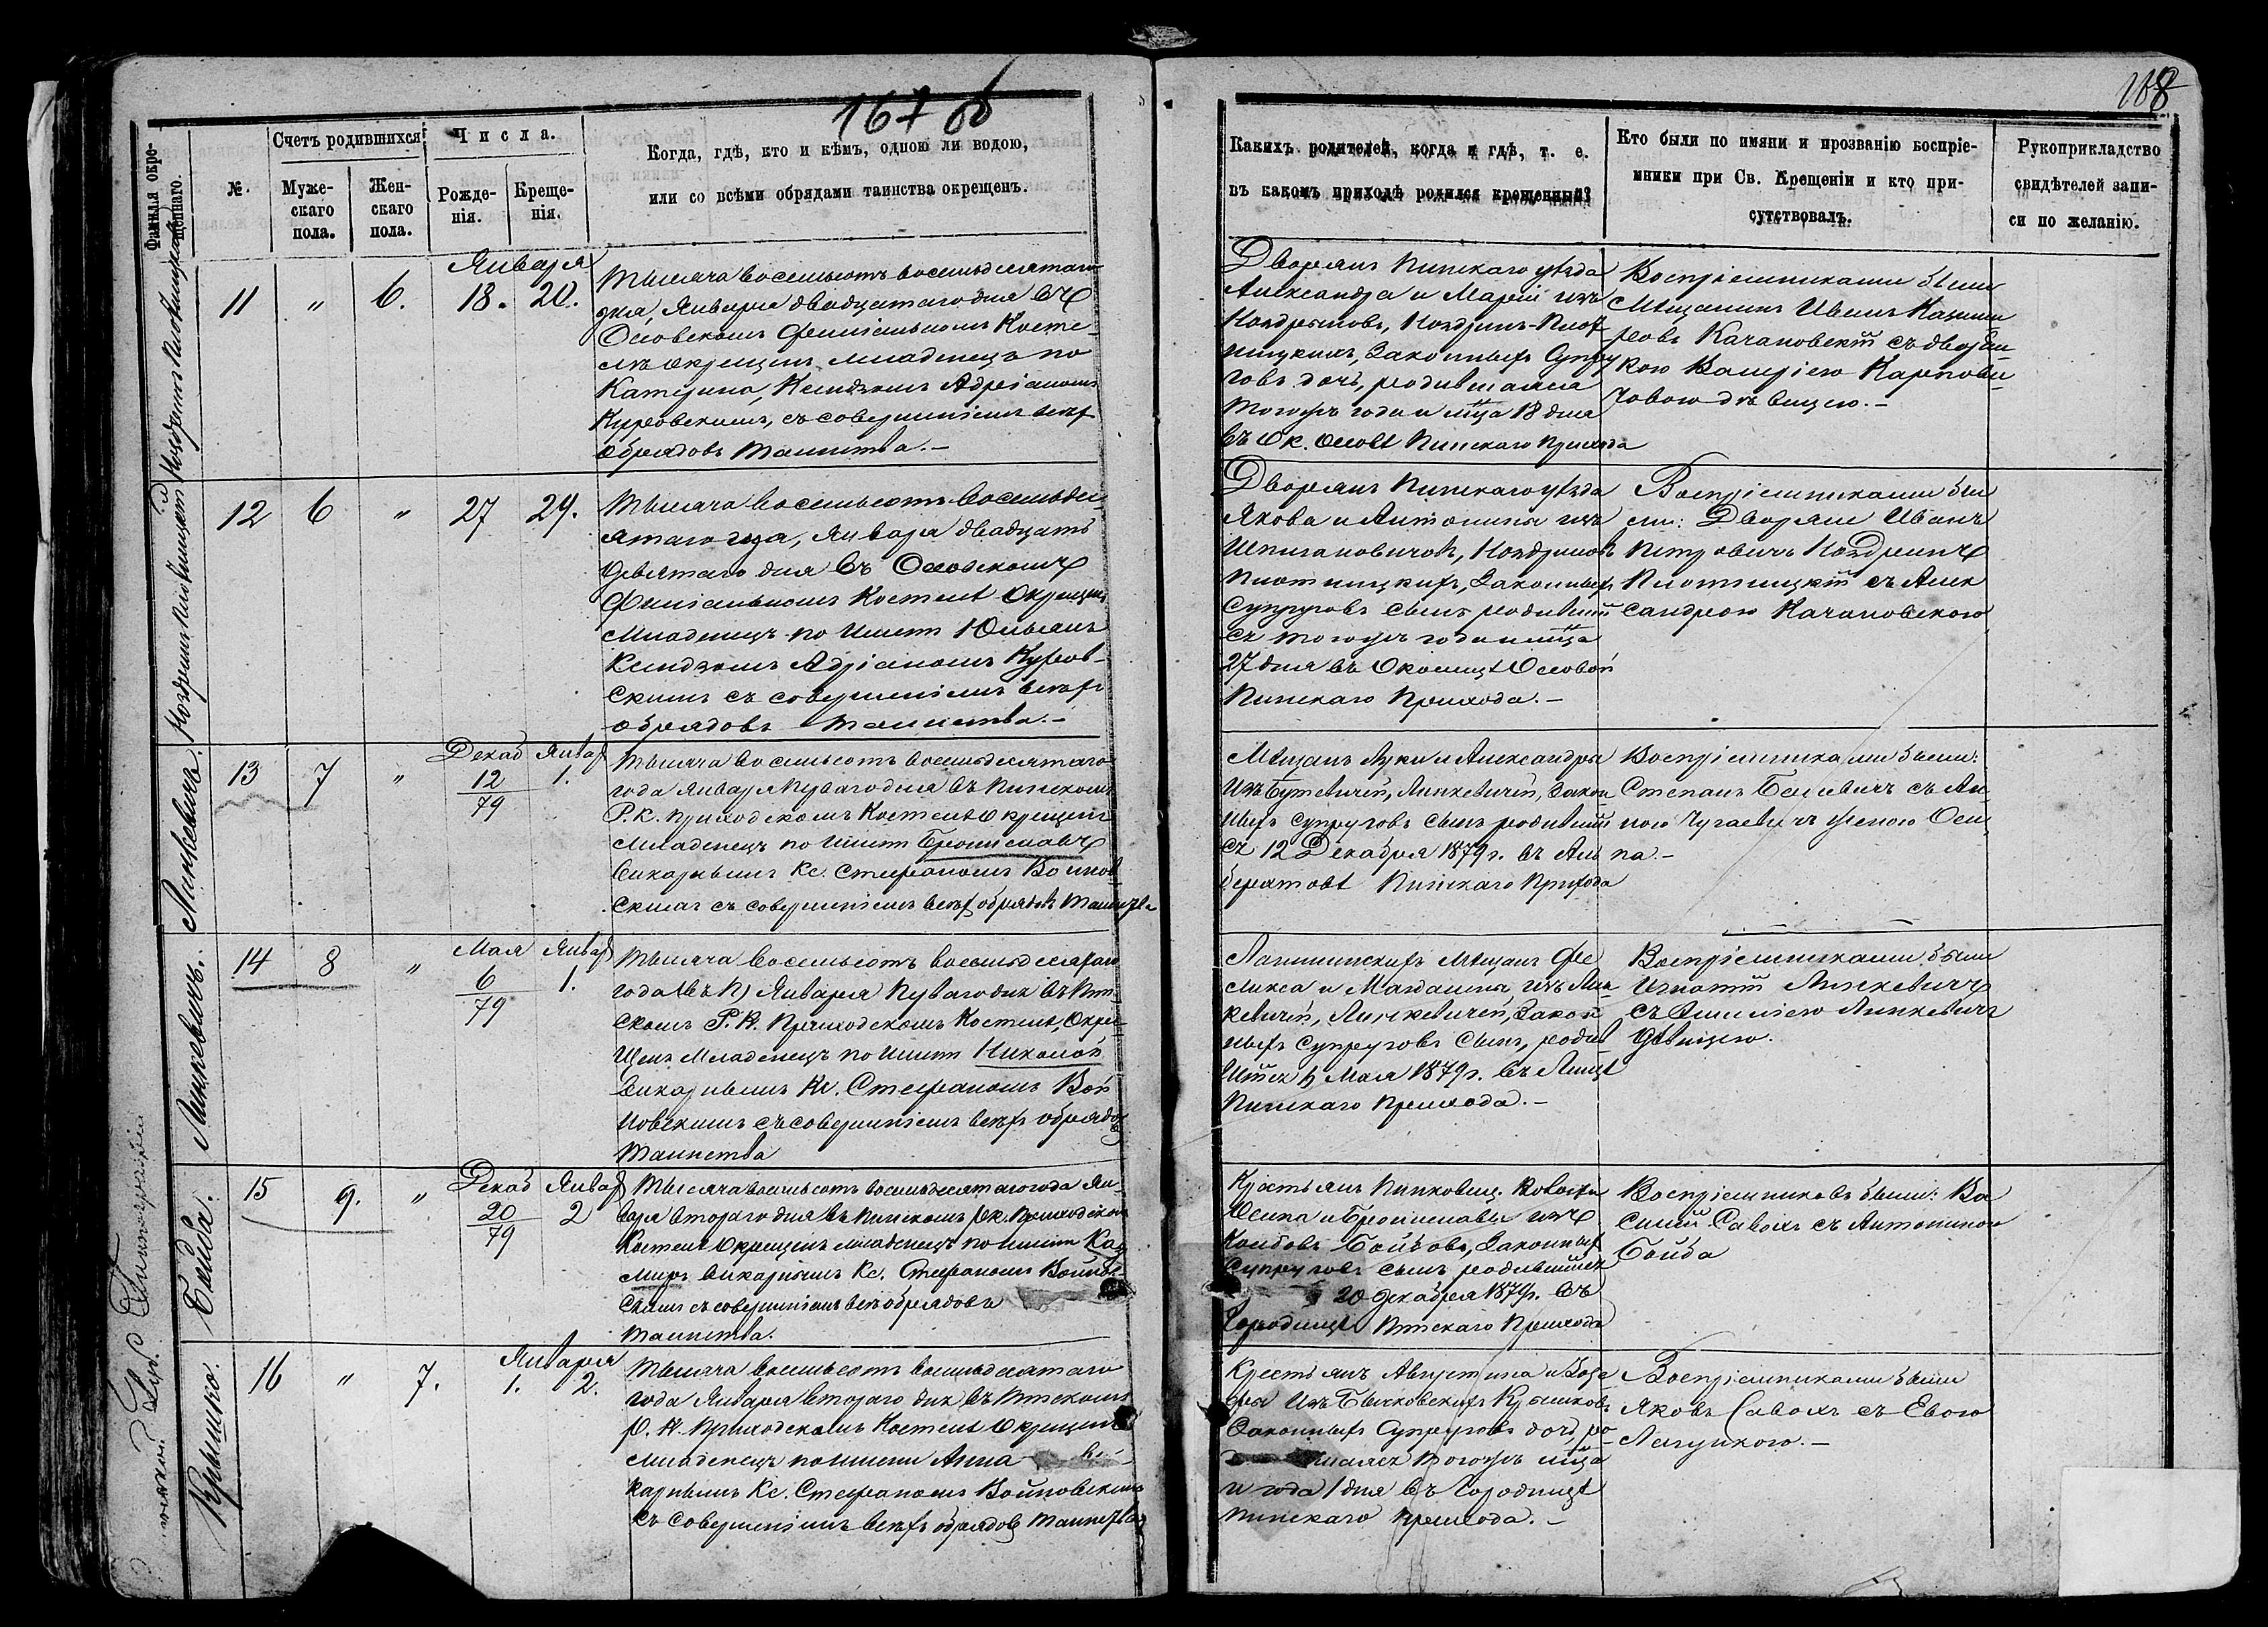 167 об
168
Фамилія окре-
щеннаго.
№.
Счетъ родившихся:
Муже-
скаго
пола.
Жен-
скаго
пола.
Числа.
Рожде-
нія.
Креще-
нія.
Когда, гдѣ, кто и кѣмъ, одною ли водою,
или со всѣми обрядами таинства окрещенъ.
Какихъ родителей, когда и гдѣ, т. е.
въ какомъ приходѣ родился крещенный?
Кто были по имяни и прозванію воспріе-
мники при Св. Крещеніи и кто при-
сутствовалъ.
Рукоприкладство
свидѣтелей запи-
си по желанію.
11
"
6.
Января
18. 20.
Тысяча восемьсотъ восемьдесятаго
года, Января двадцатаго дня въ
Осовскомъ Филіальномъ Косте-
лѣ окрещенъ младенецъ по
Катерина, Ксендзомъ Адріаномъ
Куровскимъ, съ совершеніемъ всѣхъ
обрядовъ Таинства.-
Дворянъ Пинскаго уѣзда
Александра и Маріи изъ
законныхъ Супру
говъ дочь, родившаяся
Тогожъ года и м-ца 18 дня
въ Ок. Осовѣ Пинскаго Прихода
Воспріемниками были
Мѣщанинъ Иванъ Казими
ровъ Качановскій съ дворян-
кою Валеріею Карпови-
човою дѣвицею.-
12
6
"
27
29.
Тысяча восемьсотъ восемьде
сятаго года, Января двадцать
девятаго дня въ Осовскомъ
Филіальномъ Костелѣ Окрещенъ
Младенецъ по Имени Юльянъ
Ксендзомъ Адріаномъ Куров-
скимъ съ совершеніемъ всѣхъ
обрядовъ Таинства.-
Дворянъ Пинскаго уѣзда
Якова и Антонины изъ
законныхъ
Супруговъ сынъ родившій
ся тогожъ года и м-ца
27 дня въ Околицѣ Осовой
Пинскаго Прихода.-
Воспріемниками бы
ли: Дворяне Иванъ
Петровичъ
съ Алек
сандрою Качановскою
Линкевичъ.
13
7
"
Декаб Январ
12 1.
79
Тысяча восемьсотъ восемьдесятаго
года Января Перваго дня въ Пинскомъ
Р.К. Приходскомъ Костелѣ окрещенъ
Младенецъ по Имени Брониславъ
Викарнымъ Кс. Стефаномъ Войнов-
скимъ съ совершеніемъ всѣхъ обрядовъ Таинства
Мѣщанъ Луки и Александры
Линкевичей, закон
ныхъ супруговъ сынъ родившій
ся 12 Декабря 1879 г. въ Аль
бертовѣ Пинскаго Прихода
Воспріемниками были:
Степанъ съ Ан
ною женою Оси
па.-
Линкевичъ.
14
8
"
Мая Январ
6 1.
79
Тысяча восемьсотъ восемьдесятаго
года Января Перваго дня въ Пин
скомъ Р. К. Приходскомъ Костелѣ, Окре-
щенъ Младенецъ по Имени Николай
Викарнымъ Кс. Стефаномъ Вой
новскимъ съ совершеніемъ всѣхъ обрядовъ
Таинства
мѣщанъ Фе
ликса и Магдалины изъ Лин
кевичей, Линкевичей, Закон
ныхъ Супруговъ Сынъ, родив
шійся 6 Мая 1879 г. въ
Пинскаго Прихода.-
Воспріемниками были
Игнатій Линкевичъ
съ Линкевичъ
дѣвицею.
Байда.
15
9.
"
Декаб Январ
20 2
79
Тысяча восемьсотъ восемьдесятаго года Ян-
варя втораго дня въ Пинскомъ Р.К. Приходскомъ
Костелѣ Окрещенъ младенецъ по имени Кази
миръ Викарнымъ Кс. Стефаномъ Войнов-
скимъ съ совершеніемъ всѣхъ обрядовъ
Таинства.
Крестьянъ Пинковиц. Волости
Осипа и Брониславы изъ
законныхъ
Супруговъ сынъ родившійся
20 декабря 1879 г. въ
Городищѣ Пинскаго Прихода
Воспріемниковъ были: Ва
силій Савохъ съ Антониною
Байда
Крышко.
16
"
7.
Января
1. 2.
Тысяча восемьсотъ восемьдесятаго
года Января втораго дня въ Пинскомъ
Р. К. Приходскомъ Костелѣ Окрещенъ
Младенецъ по имени Анна Ви-
карнымъ Кс. Стефаномъ Войновскимъ
съ Совершеніемъ всѣхъ обрядовъ Таинства
Крестьянъ Августина и
Изъ Бычковскихъ Крышковъ
Законныхъ Супруговъ дочь, ро-
шаяся тогожъ м-ца
и года 1 дня въ Городищѣ
Пинскаго Прихода.-
Воспріемниками были
Яковъ Савохъ съ Евою